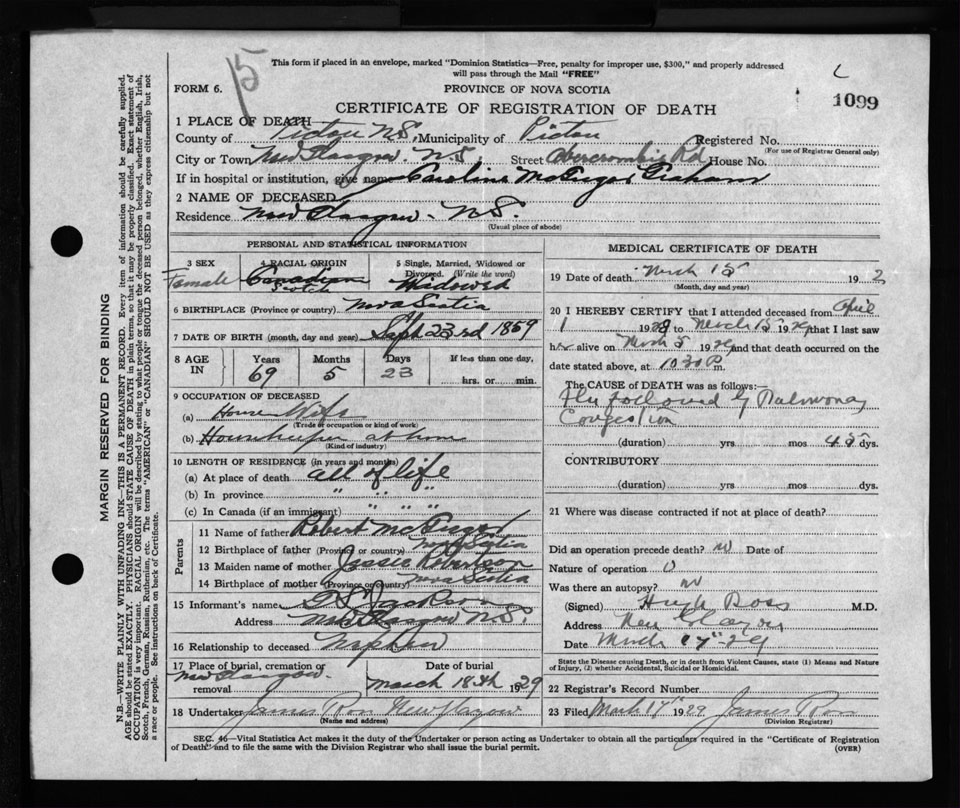 15
This form if placed in an envelope, marked "Dominion Statistics—Free, penalty for improper use, $300," and properly addressed
will pass through the Mail "FREE"
FORM 6.
PROVINCE OF NOVA SCOTIA
1099
CERTIFICATE OF REGISTRATION OF DEATH
1 PLACE OF DEATH
County of Pictou N.S. Municipality of Pictou Registered No.
(For use of Registrar General only)
City or Town New Glasgow. N.S Street Abercrombie Rd House No.
If in hospital or institution, give name Caroline McGregor Graham
2 NAME OF DECEASED
Residence New Glasgow - N.S.
(Usual place of abode)
PERSONAL AND STATISTICAL INFORMATION
3 SEX
Female
4 RACIAL ORIGIN
Canadian
Scotch
5 Single, Married, Widowed or
Divorced. (Write the word)
Widowed
6 BIRTHPLACE (Province or country) Nova Scotia
7 DATE OF BIRTH (month, day and year) Sept 23rd 1859
8 AGE IN
Years 69
Months 5
Days 23
If less than one day,
hrs. or min.
9 OCCUPATION OF DECEASED
(a) House Wife
(Trade or occupation or kind of work)
(b) Housekeeper at home
(Kind of industry)
10 LENGTH OF RESIDENCE (in years and months)
(a) At place of death all of life
(b) In province " " "
(c) In Canada (if an immigrant) " " "
Parents
11 Name of father Robert McGregor
12 Birthplace of father (Province or country) Nova Scotia
13 Maiden name of mother Jessie Robertson
14 Birthplace of mother (Province or country) Nova Scotia
15 Informant's name Jackson
Address New Glasgow N.S.
16 Relationship to deceased Nephew
17 Place of burial, cremation or
removal New Glasgow.
Date of burial
March 18th 1929
18 Undertaker James Ross New Glasgow
(Name and address)
MEDICAL CERTIFICATE OF DEATH
19 Date of death March 15 192
(Month, day and year)
20 I HEREBY CERTIFY that I attended deceased from April
1 1928 to March 15 1929 that I last saw
her alive on March 5 1929 and that death occurred on the
date stated above, at 10 30 P m.
The CAUSE OF DEATH was as follows:
Flu followed by Pulmonary
Congestion
(duration) yrs mos dys.
CONTRIBUTORY
(duration) yrs. mos. dys.
21 Where was disease contracted if not at place of death?
Did an operation precede death? no Date of
Nature of operation 0
Was there an autopsy? no
(Signed) Hugh Ross M.D.
Address New Glasgow
Date March 17"-29
State the Disease causing Death, or in death from Violent Causes, state (1) Means and Nature
of Injury, (2) whether Accidental, Suicidal or Homicidal.
22 Registrar's Record Number
23 Filed March 17 1929 James Ross
(Division Registrar)
SEC. 46—Vital Statistics Act makes it the duty of the Undertaker or person acting as Undertaker to obtain all the particulars required in the "Certificate of Registration
of Death" and to file the same with the Division Registrar who shall issue the burial permit.
(OVER)
MARGIN RESERVED FOR BINDING
N.B.—WRITE PLAINLY WITH UNFADING INK—THIS IS A PERMANENT RECORD. Every item of information should be carefully supplied.
AGE should be stated EXACTLY. PHYSICIANS should STATE CAUSE OF DEATH in plain terms, so that it may be properly classified. Exact statement of
OCCUPATION is very important. RACIAL ORIGIN will be described by stating to what people or tongue the deceased person belonged, whether English, Irish,
Scotch, French, German, Russian, Ruthenian, etc. The terms "AMERICAN" or "CANADIAN" SHOULD NOT BE USED as they express citizenship but not
a race or people. See instructions on back of Certificate.